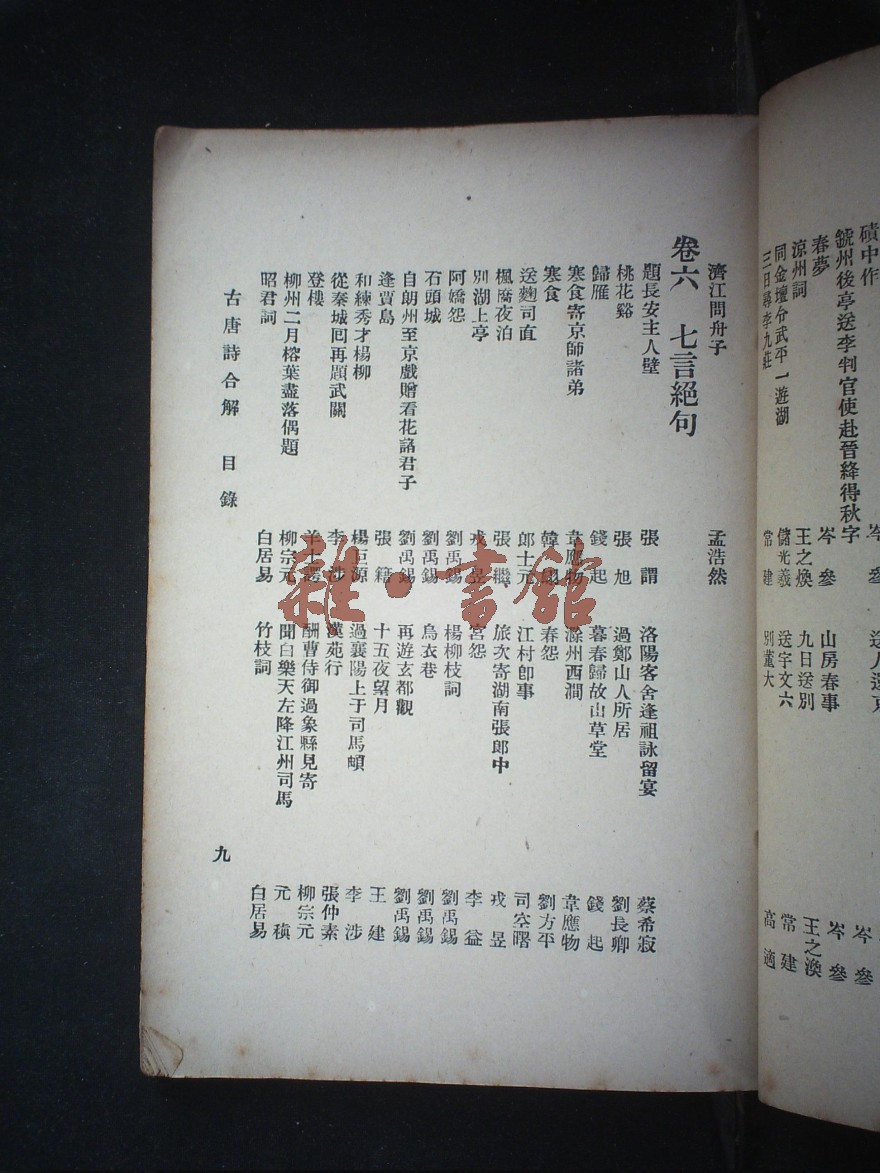 磧中作 岑參 送人還京
虢州後亭送李判官使赴晉絳得秋字 岑參
春夢 岑參 山房春事 岑參
涼州詞 王之渙 九日送別 王之渙
同金壇令武平一遊湖 儲光羲 送宇文六 常建
三日尋李九莊 常建 別董大 高適
濟江問舟子 孟浩然
卷六 七言絕句
題長安主人壁 張謂 洛陽客舍逢祖詠留宴 蔡希寂
桃花谿 張旭 過鄭山人所居 劉長卿
歸雁 錢起 暮春歸故山草堂 錢起
寒食寄京師諸弟 韋應物 滁州西澗 韋應物
寒食 韓翃 春怨 劉方平
送麴司直 郎士元 江村卽事 司空曙
楓橋夜泊 張繼 旅次寄湖南張郎中 戎昱
別湖上亭 戎昱 宮怨 李益
阿嬌怨 劉禹錫 楊柳枝詞 劉禹錫
石頭城 劉禹錫 烏衣巷 劉禹錫
自朗州至京戲贈看花諸君子 劉禹錫 再遊玄都觀 劉禹錫
逢賈島 張籍 十五夜望月 王建
和練秀才楊柳 楊巨源 過襄陽上于司馬頔 李涉
從秦城回再題武關 李涉 漢苑行 張仲素
登樓 羊士諤 酬曹侍御過象縣見寄 柳宗元
柳州二月榕葉盡落偶題 柳宗元 聞白樂天左降江州司馬 元稹
昭君詞 白居易 竹枝詞 白居易
古唐詩合解 目錄 九
雜·書館